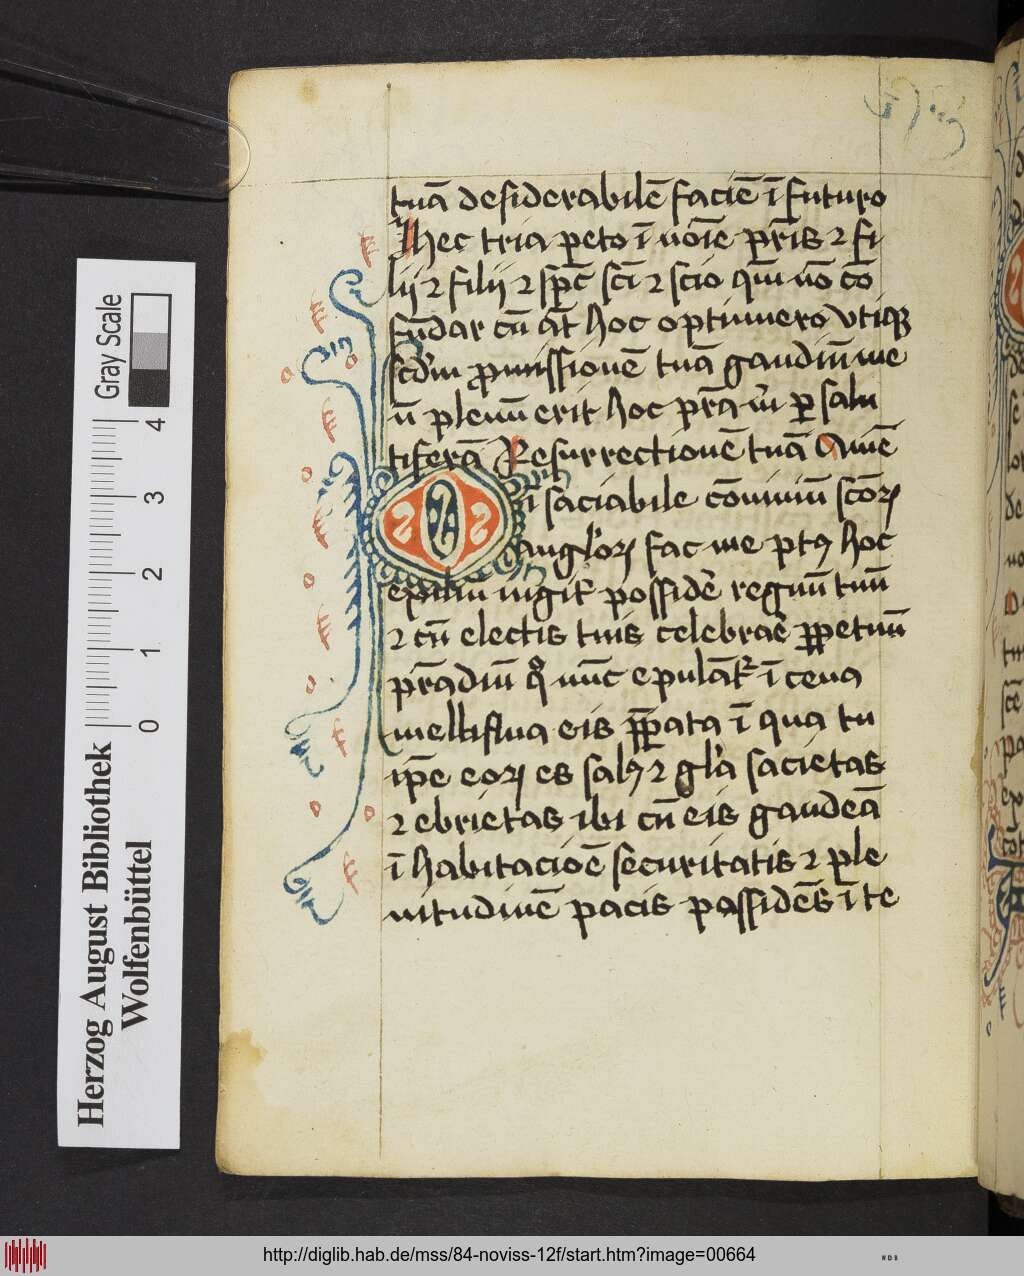 tuā desiderabilē faciē ī futuro
Hec tria peto ī noīe pr̄is ⁊ fi
lij ⁊ filij ⁊ sp̄c sc̄i ⁊ scio qm̄ nō cō
fūdar cū āt hoc optinuero vtiqꝫ
scd̄m ꝓmissionē tuā gaudiū me
ū plenū erit hoc pr̄a m̄ ꝑ salu
tiferā Resurrectionē tuā Amē
O īsaciabile cōuiuiū sc̄oꝝ
angl̓oꝝ fac me ptꝰ hoc
exiliū nigit̄ possidē regnū tuū
⁊ cū electis tuis celebrāe ꝑpetuū
prādiū qͦ nūc epulāt̄ ī cena
melliflua eis p̄parata ī qua tu
ip̄e eoꝝ es salꝰ ⁊ gl̓a sacietas
⁊ ebrietas ibi cū eis gaudeā
ī habitacioē securitatis ⁊ ple
nitudinē pacis possidēs ī te
Herzog August Bibliothek
Wolfenbüttel
Gray Scale
0 1 2 3 4
http://diglib.hab.de/mss/84-noviss-12f/start.htm?image=00664